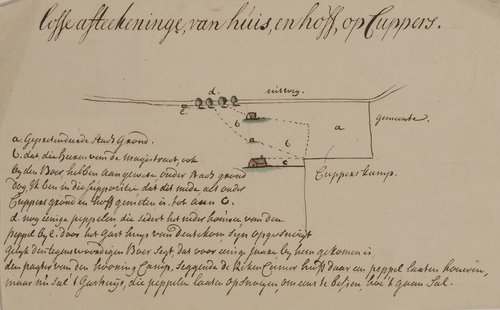 Losse afteekeninge, van huis, en hoff, op Cuppers.
d.
rijsweg.
E.
b
a
gemeente.
b
c
Cupperskamp.
a. Gepretendeerde Stads Grond.
b. dat die Heeren van de magistraet, ook
bij den Boer hebben aangewesen onder Stads grond
dog Ik ben in die suppositie dat dit mede al onder
Cuppers grond en hoff gemeten is. tot aan C.
d. nog eenige peppelen die sedert het neder houwen van den
peppel bij E. door het Gast huys van sijn opgesnoeijt
Gelijk den tegenswoordigen Boer Segt, dat voor eenige Jaaren bij hem gekomen is
den pagter van den Camp, Seggende de heeft daar en peppel laaten houwen,
maar nu Sal 't Gasthuijs, die peppelen laaten opsnoeijen, om eens te besien, hoe 't gaan Sal.